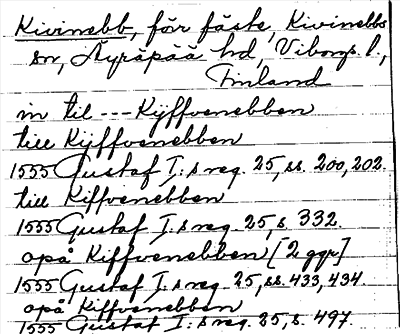 Kivinebb, för fäste, Kivinebbs
sn, Äyräpää hd, Viborgs l.,
Finland
in til --- Kÿffvenebben
till Kÿffvenebben
1555 Gustaf I:s reg. 25, ss. 200, 202.
till Kiffvenebben
1555 Gustaf I:s reg. 25, s. 332.
opå Kiffvenebben [2 ggr]
1555 Gustaf I:s reg. 25, ss. 433, 434.
opå Kiffvenebben
1555 Gustaf I:s reg. 25, s. 497.